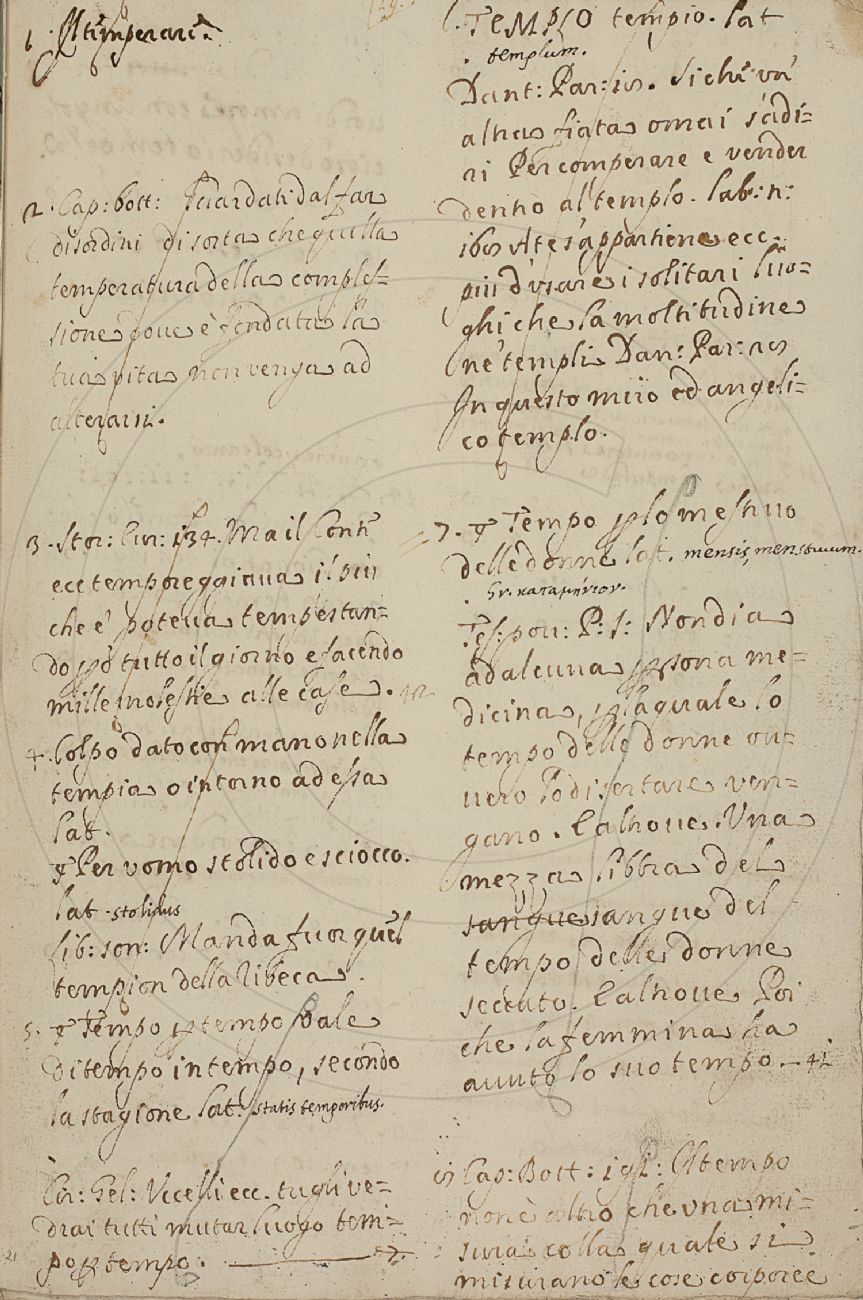 1. Attemperare.
2. Cap: bott: Guardati dal far
disordini di sorta che quella
temperatura della comples=
sione doue è fondata la
tua vita non venga ad
alterarsi.
3. Stor: Eur: 134. Ma il Conte
ecc temporeggiaua il piu
che e' poteua tempestan=
do ꝑ tutto il giorno e facendo
mille molestie alle case.
4. Colpo dato con mano nella
tempia o intorno ad essa
lat.
Per vomo stolido e sciocco.
lat. stolidus
lib: son: Manda fuor quel
tempion della ribeca.
5. Tempo ꝑ tempo vale
di tempo in tempo, secondo
la stagione lat: statis temporibus.
Cir: Gel: Vccelli ecc. tu gli ve=
drai tutti mutar luogo tem=
po ꝑ tempo.
6. TEMPLO tempio. lat
templum.
Dant: Par: 18. Si ch'un'
altra fiata omai s'adi=
ri Per comperare e vender
dentro al templo. lab: n:
168 A te s'appartiene ecc.
piu d'usare i solitari luo=
ghi che la moltitudine
ne' templi Dan: Par: 28
In questo miro ed angeli=
co templo.
7. Tempo ꝑ lo mestruo
delle donne lat. mensis, menstruum.
Gr. καταμήνιον.
Tes: pou: P: S: Non dia
ad alcuna ꝑsona me=
dicina, ꝑ la quale lo
tempo delle donne ou=
uero lo disertare ven=
gano. E altroue. Una
mezza libbra del
sangue sangue del
tempo delle donne
seccato. E altroue Poi
che la femmina ha
auuto lo suo tempo.
8 Cap: Bott: 191: Il tempo
non è altro che vna mi=
sura colla quale si
misurano le cose corporee